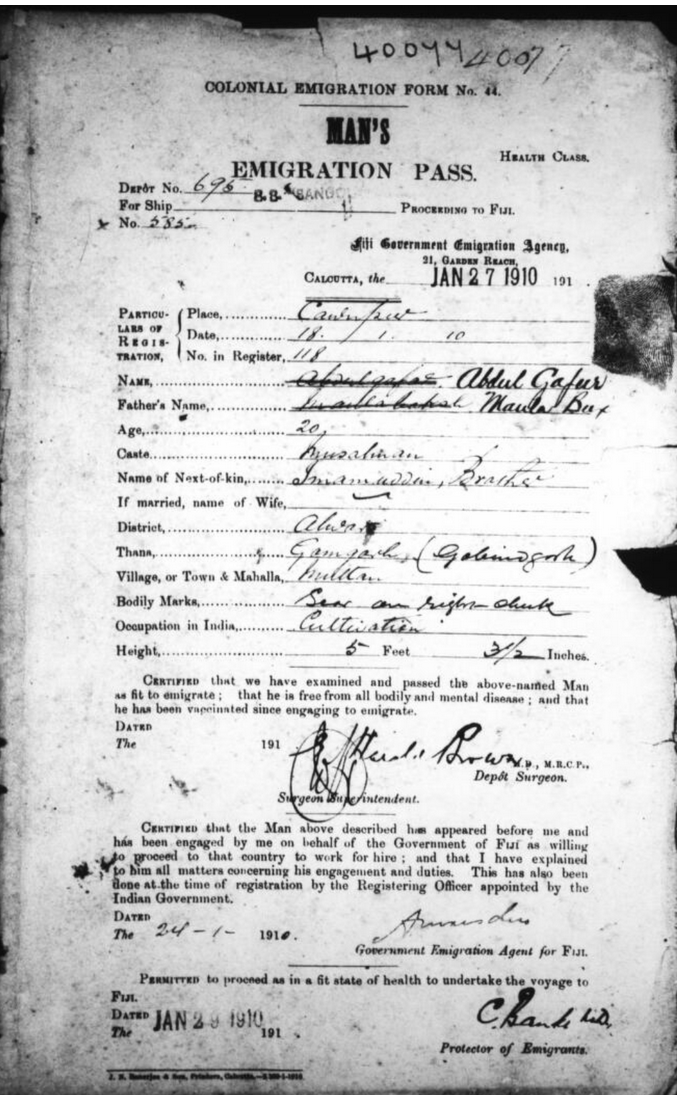 40077 4007
COLONIAL EMIGRATION FORM No. 44.
MAN'S
HEALTH CLASS.
EMIGRATION PASS.
DEPÔT No. 695
For Ship S.S. SANGOLA PROCEEDING TO FIJI.
No. 585
Fiji Government Emigration Agency,
21, GARDEN REACH,
CALCUTTA, the JAN 27 1910 191
PARTICULARS OF REGISTRATION,
Place, Cawnpur
Date, 18. 1. 10
No. in Register, 118
NAME, Abdulgafar Abdul Gafur
Father's Name, Maullabaksh Maula Bux
Age, 20
Caste Musalman
Name of Next-of-kin, Imamuddin, Brother
If married, name of Wife,
District, Alwar
Thana, (Gobindgarh)
Village, or Town & Mahalla, Multan
Bodily Marks, Scar on right cheek
Occupation in India, Cultivation
Height, 5 Feet 3½ Inches.
CERTIFIED that we have examined and passed the above-named Man
as fit to emigrate; that he is free from all bodily and mental disease; and that
he has been vaccinated since engaging to emigrate.
DATED
The 191
Harold Brown M.D., M.R.C.P.,
Depôt Surgeon.
Surgeon Superintendent.
CERTIFIED that the Man above described has appeared before me and
has been engaged by me on behalf of the Government of FIJI as willing
to proceed to that country to work for hire; and that I have explained
to him all matters concerning his engagement and duties. This has also been
done at the time of registration by the Registering Officer appointed by the
Indian Government.
DATED
The 24-1-1910.
Government Emigration Agent for FIJI.
PERMITTED to proceed as in a fit state of health to undertake the voyage to
FIJI.
DATED JAN 29 1910
The 191 .
C. Banks
Protector of Emigrants.
J. N. Banerjee & Son, Printers, Calcutta.